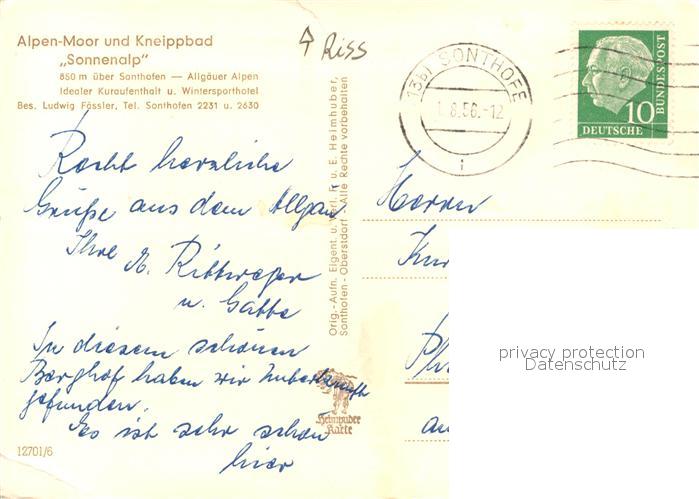 Alpen-Moor und Kneippbad
„Sonnenalp"
850 m über Sonthofen — Allgäuer Alpen
Idealer Kuraufenthalt u. Wintersporthotel
Bes. Ludwig Fässler, Tel. Sonthofen 2231 u. 2630
Riss
Recht herzliche
Grüße aus dem Allgäu
Ihre E. Rittweger
u. Gatte
In diesem schönen
Berghof haben wir Unterkunft
gefunden.
Es ist sehr schön
hier
12701/6
Orig.-Aufn. Eigent. u. Verl. F. u. E. Heimhuber,
Sonthofen - Oberstdorf - Alle Rechte vorbehalten
Heimhuber
Karte
(13b) SONTHOFE
1.8.56.-12
i
10
DEUTSCHE
BUNDESPOST
Herrn
Kur
Ph
au
privacy protection
Datenschutz